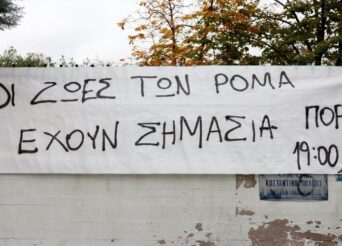 ΟΙ ΖΩΕΣ ΤΩΝ ΡΟΜΑ
ΕΧΟΥΝ ΣΗΜΑΣΙΑ
ΠΟΡ
19:00